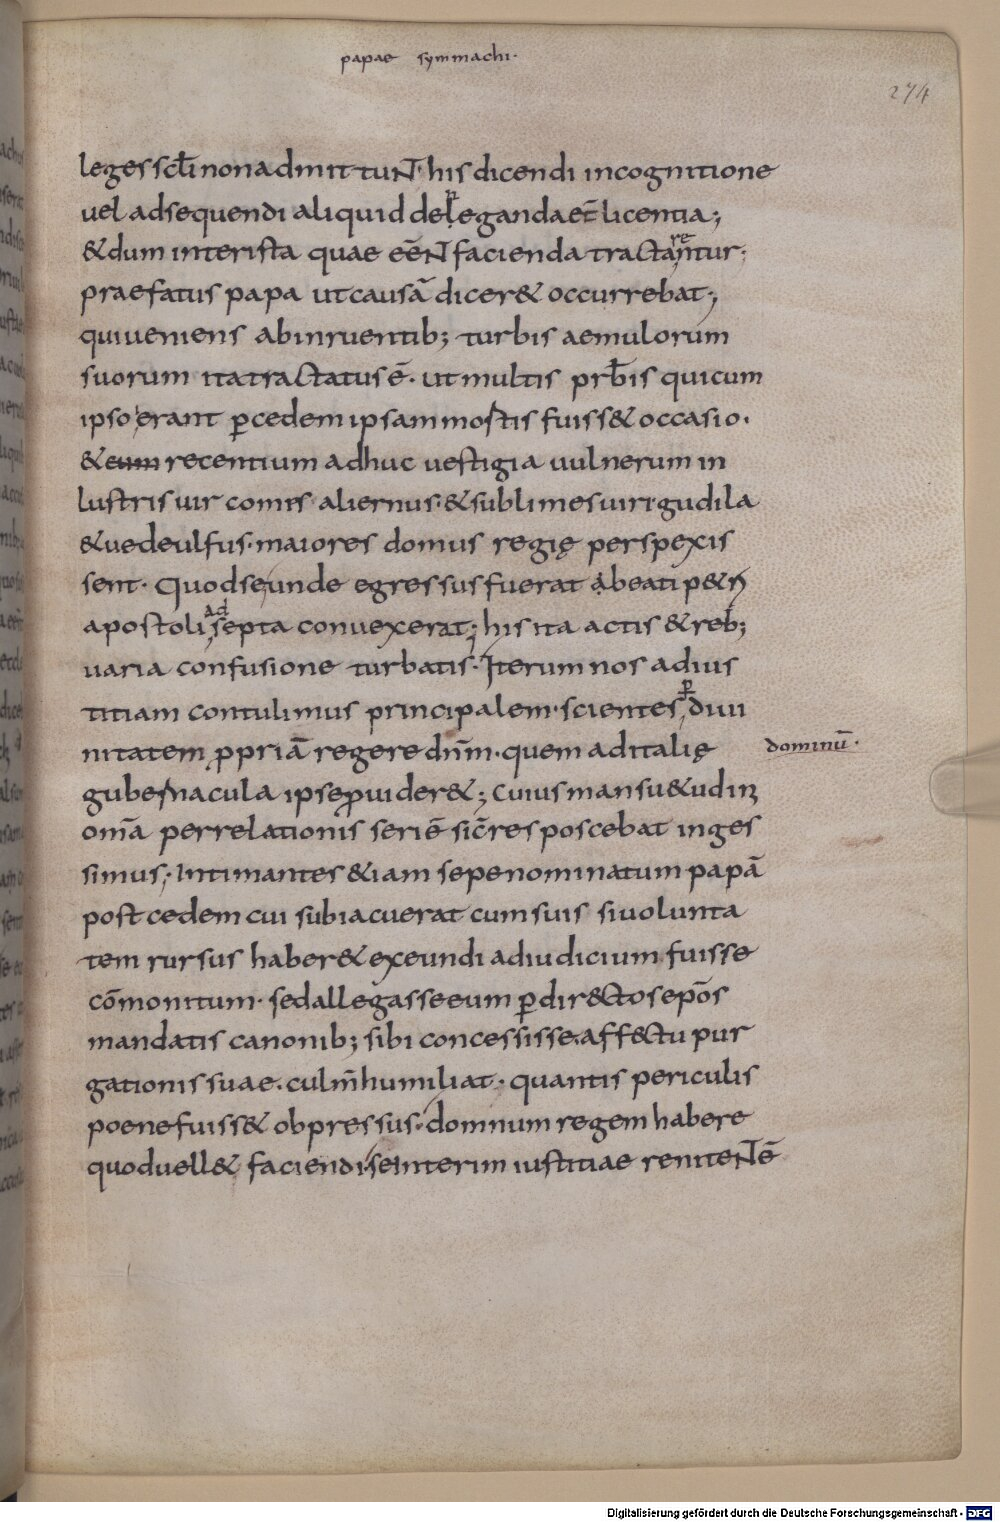 papae symmachi·
274
leges scl̄i non admittuNT his dicendi in cognitione
uel adsequendi aliquid delꝑeganda ēē licentia;
& dum inter ista quae eēNT facienda tractarentur·
praefatus papa ut causā dicer& occurrebat;
qui ueniens ab inruentib; turbis aemulorum
suorum ita tractatus ē· ut multis prb̄is qui cum
ipso erant ꝑ cedem ipsam mostis fuiss& occasio·
& eum recentium adhuc uestigia uulnerum in
lustris uir comis aliernus· & sublimes uiri· gudila
& uedeulfus· maiores domus regię perspexis
sent· Quod se unde egressus fuerat a beati p&ri
apostoli ad septa conuexerat; his ita actis & reb;
uaria confusione turbatis· Iterum nos ad ius
titiam contulimus principalem· scientes ꝑ diui
nitatem ꝓpriā regere dn̄m· quem ad italię
dominū·
gubernacula ipse ꝓuider&; Cuius mansu&udin
om̄a per relationis seriē sic̄ res poscebat inges
simus; Intimantes &iam sepe nominatum papā
post cedem cui subiacuerat cum suis si uolunta
tem rursus haber& exeundi ad iudicium fuisse
cōmonitum· sed allegasse eum ꝑ dir&tos epōs
mandatis canonib; sibi concessisse· aff&tu pur
gationis suae· culm̄ humiliat· quantis periculis
poene fuiss& obpressus· domnum regem habere
quod uell& faciendi· se interim iustitiae reniteNTē
Digitalisierung gefördert durch die Deutsche Forschungsgemeinschaft - DFG